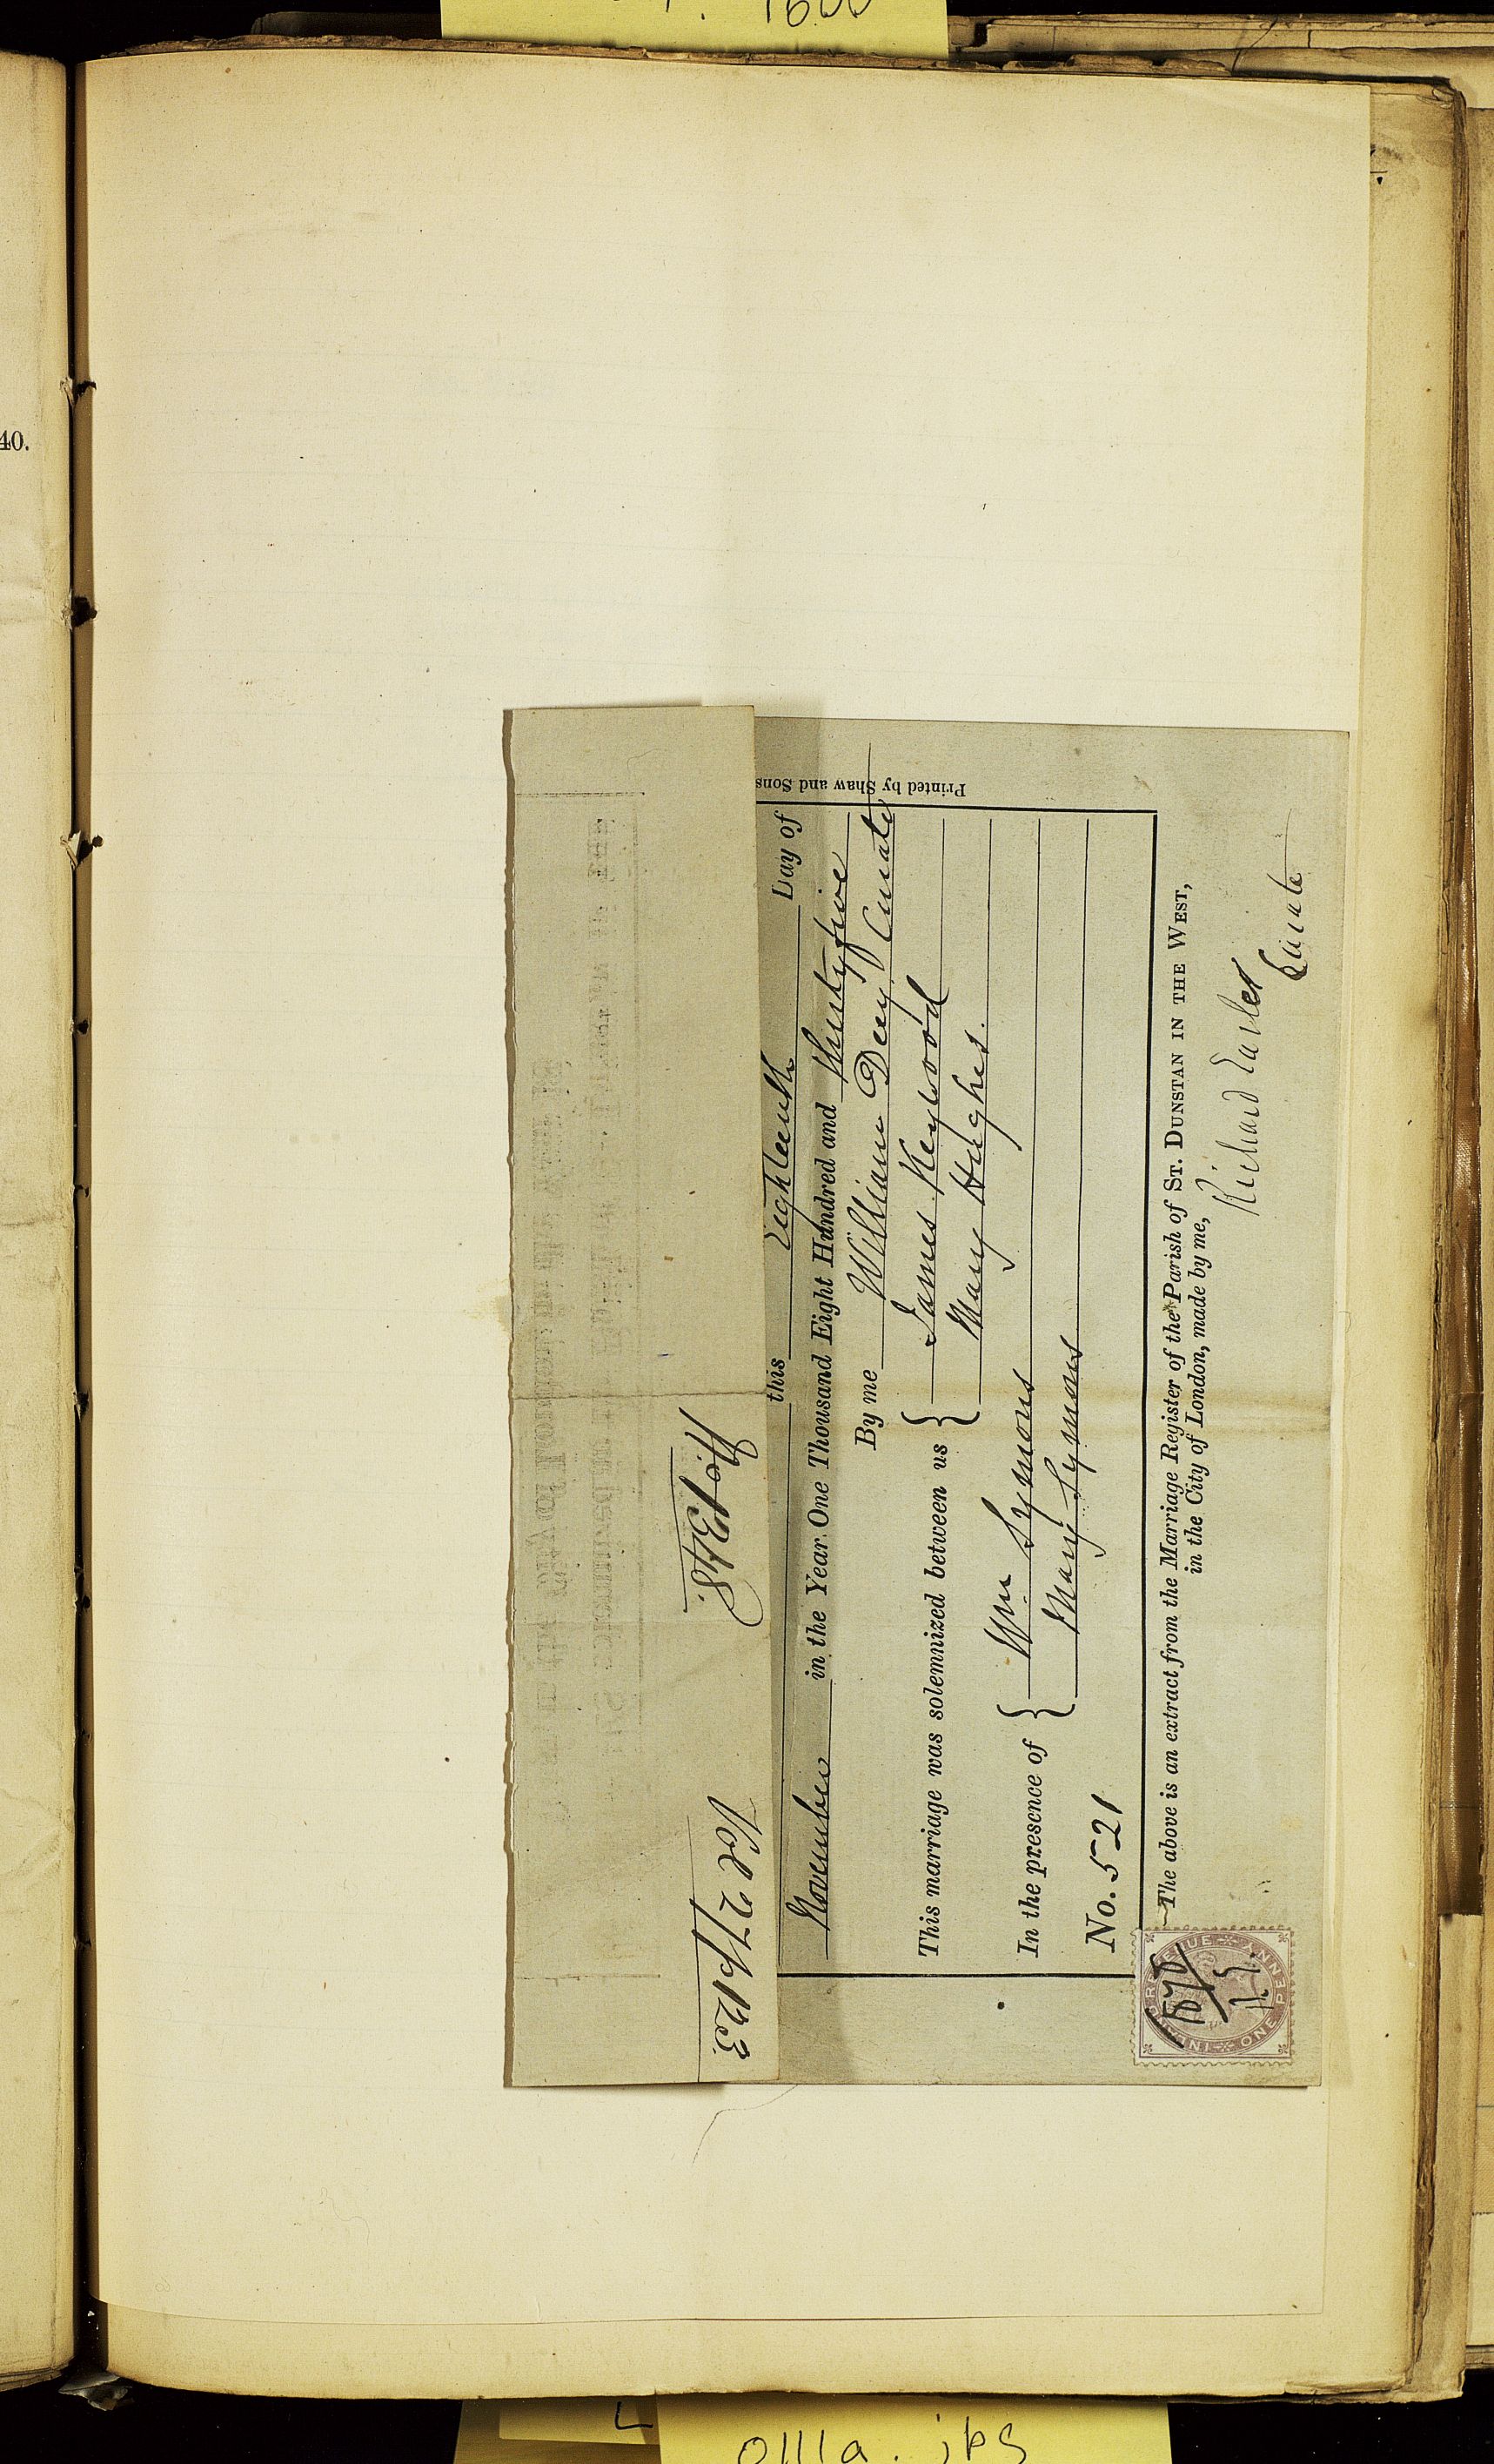 40.
1600
Vol 27/p123.
No. 1348.
this Eighteenth Day of
November in the Year One Thousand Eight Hundred and thirtyfive
By me William Deey Curate
This marriage was solemnized between us { James Keywood
Mary Hughes.
In the presence of { Wm Symons
Mary Symons
No. 521
The above is an extract from the Marriage Register of the Parish of St. Dunstan in the West,
in the City of London, made by me, Richard
Curate
Printed by Shaw and Sons
INLAND REVENUE
ONE PENNY
0111a.jpg